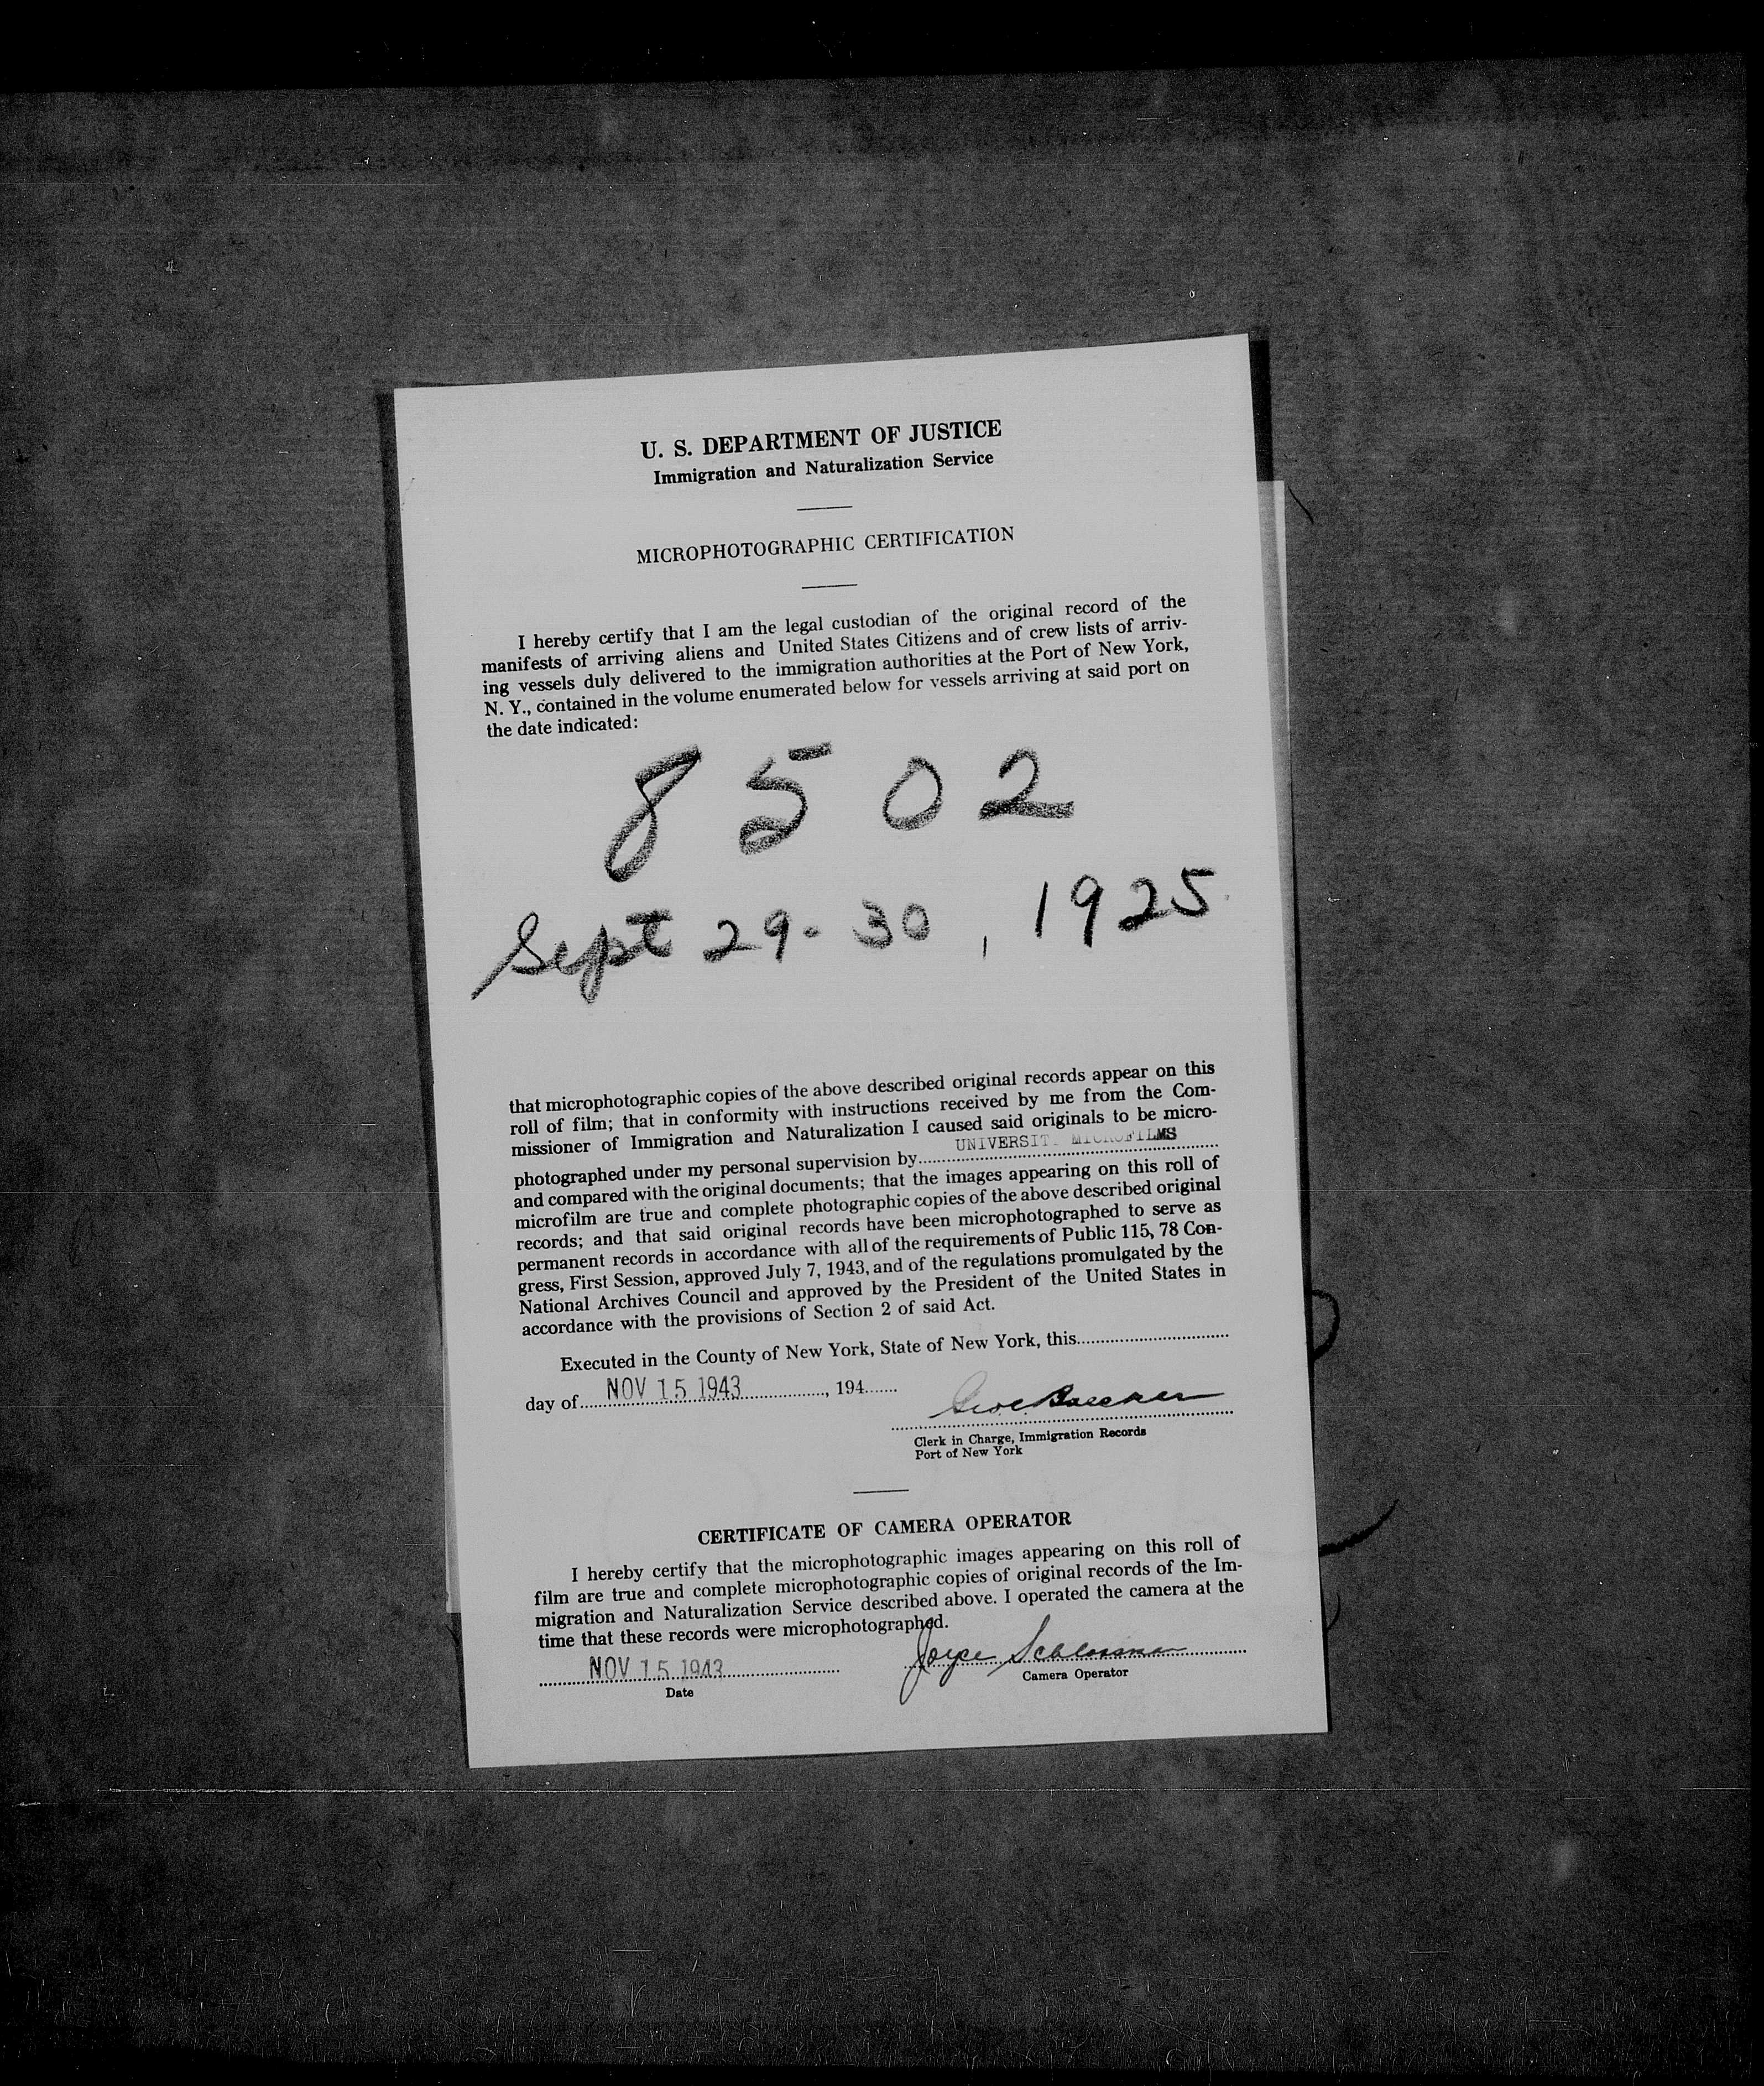 U. S. DEPARTMENT OF JUSTICE
Immigration and Naturalization Service
MICROPHOTOGRAPHIC CERTIFICATION
I hereby certify that I am the legal custodian of the original record of the
manifests of arriving aliens and United States Citizens and of crew lists of arriv-
ing vessels duly delivered to the immigration authorities at the Port of New York,
N. Y., contained in the volume enumerated below for vessels arriving at said port on
the date indicated:
8502
Sept 29-30, 1925
that microphotographic copies of the above described original records appear on this
roll of film; that in conformity with instructions received by me from the Com-
missioner of Immigration and Naturalization I caused said originals to be micro-
photographed under my personal supervision by UNIVERSITY MICROFILMS
and compared with the original documents; that the images appearing on this roll of
microfilm are true and complete photographic copies of the above described original
records; and that said original records have been microphotographed to serve as
permanent records in accordance with all of the requirements of Public 115, 78 Con-
gress, First Session, approved July 7, 1943, and of the regulations promulgated by the
National Archives Council and approved by the President of the United States in
accordance with the provisions of Section 2 of said Act.
Executed in the County of New York, State of New York, this
day of NOV 15 1943, 194
Clerk in Charge, Immigration Records
Port of New York
CERTIFICATE OF CAMERA OPERATOR
I hereby certify that the microphotographic images appearing on this roll of
film are true and complete microphotographic copies of original records of the Im-
migration and Naturalization Service described above. I operated the camera at the
time that these records were microphotographed.
NOV 15 1943 Joyce
Date
Camera Operator